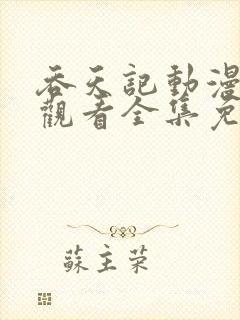 吞天記動漫
觀看全集免
蘇主荣